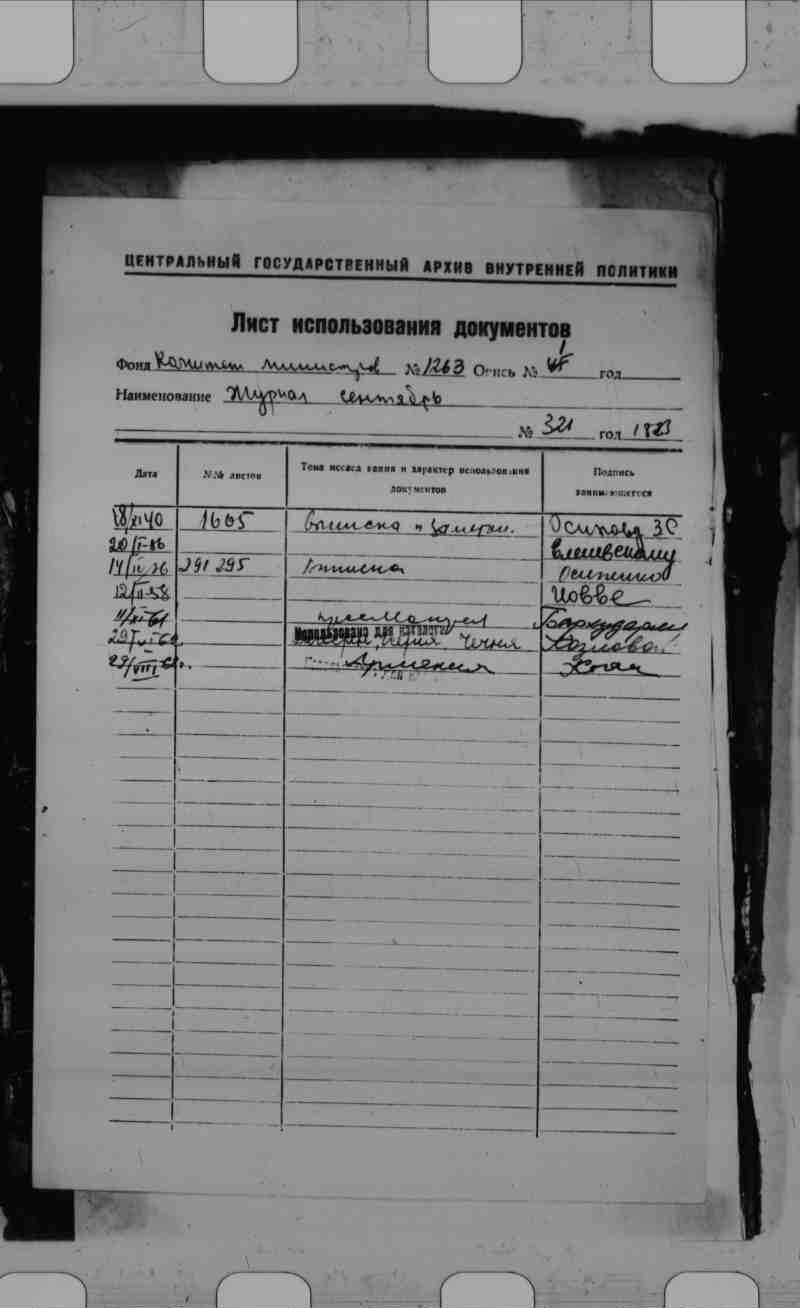 ЦЕНТРАЛЬНЫЙ ГОСУДАРСТВЕННЫЙ АРХИВ ВНУТРЕННЕЙ ПОЛИТИКИ
Лист использования документов
Фонд Комитет министров № 1263 Опись № 1 год
Наименование Журнал сентябрь
№ 321 год 1823
Дата №№ листов Тема исследования и характер использования документов Подпись занимающегося
18/XI 40 1605 выписка и заметки. Осипова ЗС
20/I-56
14/IV 56 291 295 выписка
12/II-58 Цовве
11/XI-61 просмотрел
29/VI 62 Использовано для каталога Чечня Козлова
29/VIII Армения